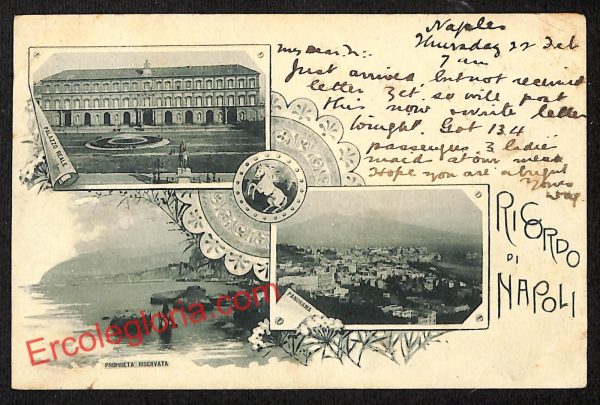 Naples
Thursday 22 Feb
7 am
my dear
Just arrived, but not received
letter yet so will post
this now & write letter
tonight. Got 134
passengers. 3 ladie
maid at our mess
Hope you are alright
Yours
PALAZZO REALE
RICORDO
DI
NAPOLI
PANORAMA
Ercolegloria.com
PROPRIETA RISERVATA